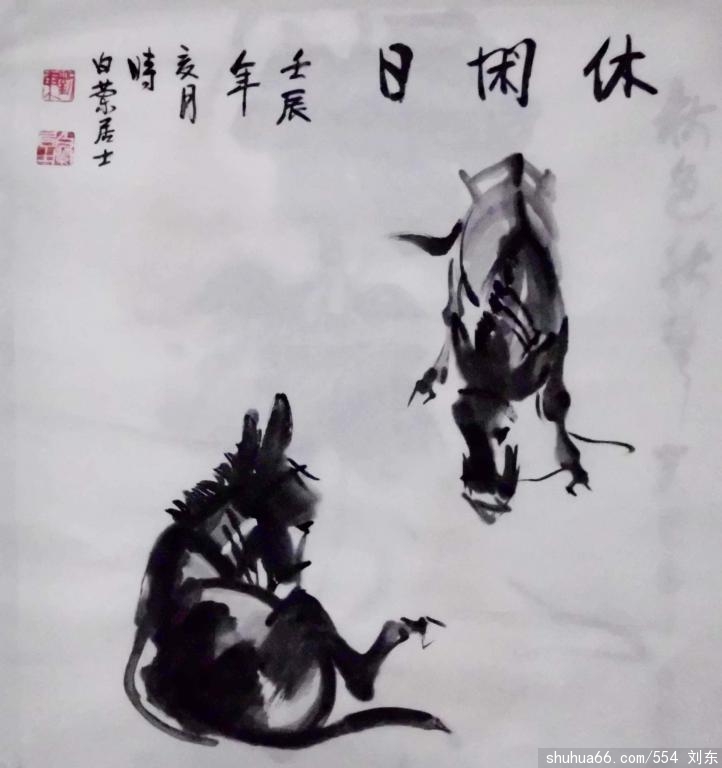 休闲日
壬辰
年
亥月
時
白荣居士
shuhua66.com/554 刘东